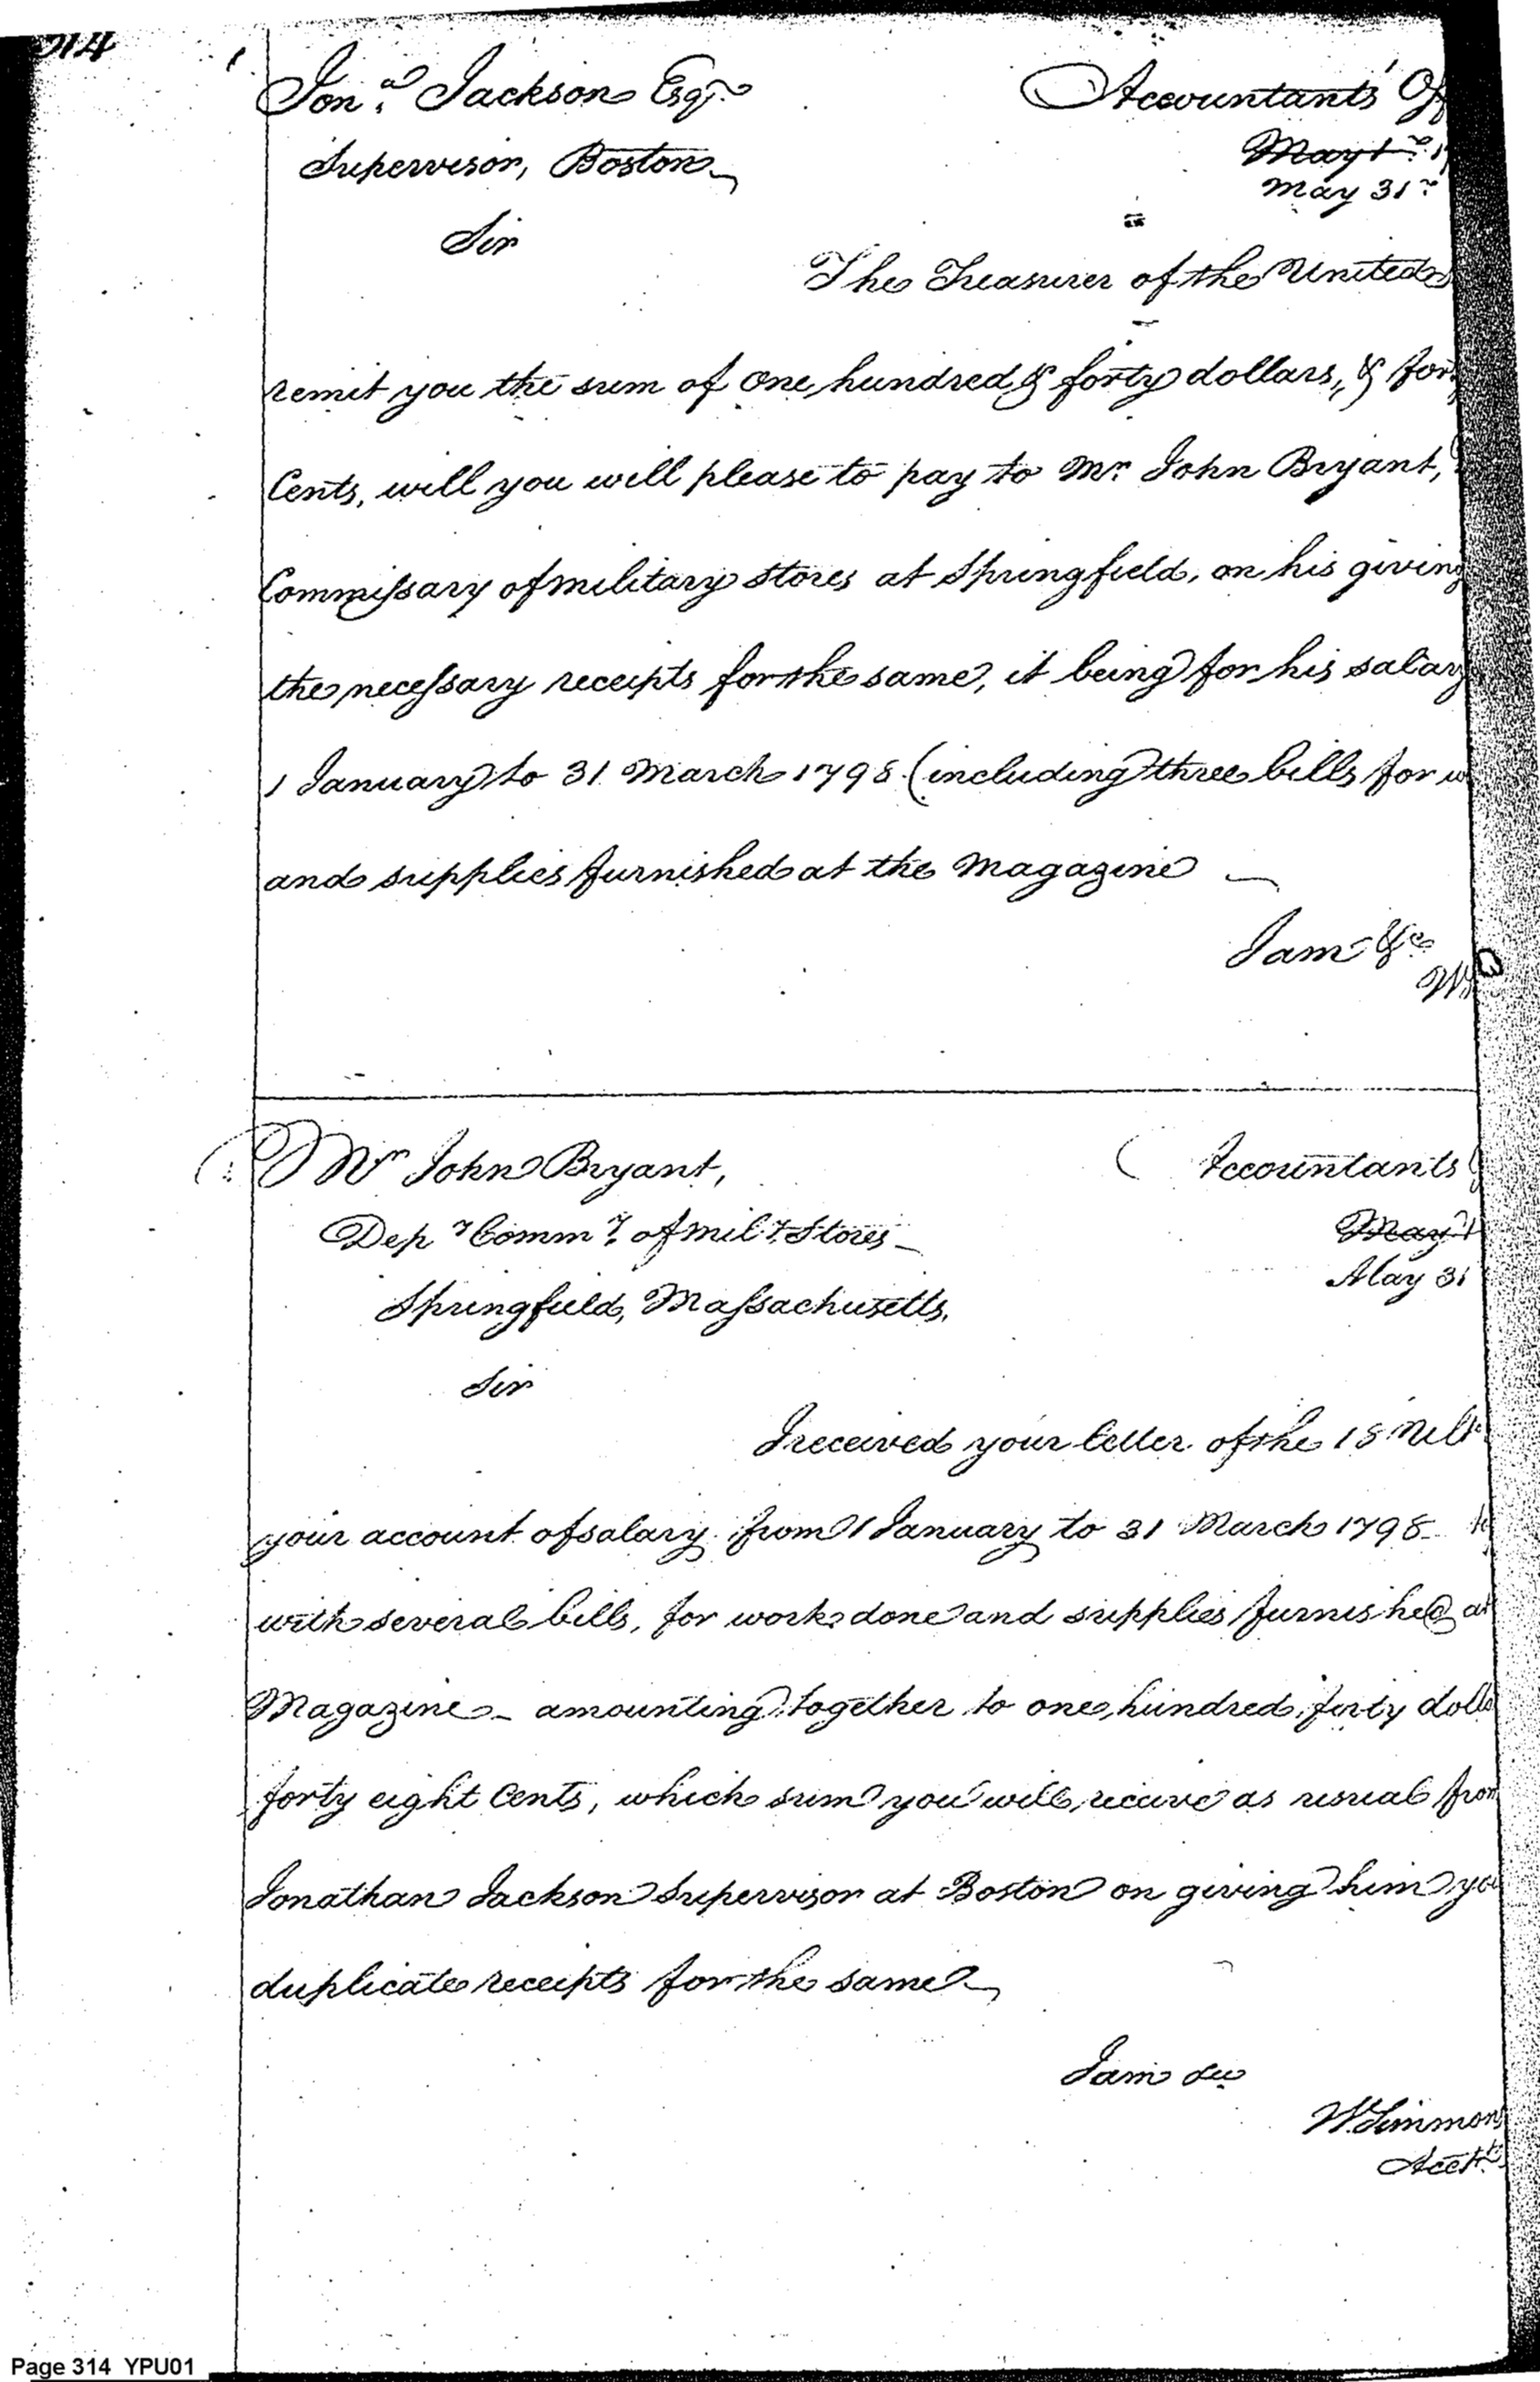 314
Jon.a Jackson Esqr.
Accountants' Of
Supervisor, Boston
May 1
May 31
Sir
The Treasurer of the United
remit you the sum of one hundred & forty dollars, & for
Cents, will you will please to pay to Mr. John Bryant,
Commissary of military stores at Springfield, on his giving
the necessary receipts for the same, it being for his salary
1 January to 31 March 1798 (including three bills for w
and supplies furnished at the Magazine
I am &c
W
Mr John Bryant,
Accountants
Depy Commy of mily Stores
May
May 31
Springfield, Massachusetts.
Sir
I received your letter of the 18
your account of salary from 1 January to 31 March 1798
with several bills, for work done and supplies furnished at
Magazine - amounting together to one hundred forty dolla
forty eight Cents, which sum you will receive as usual from
Jonathan Jackson Supervisor at Boston on giving him you
duplicate receipts for the same
I am &c
W. Simmons
Acct.
Page 314 YPU01